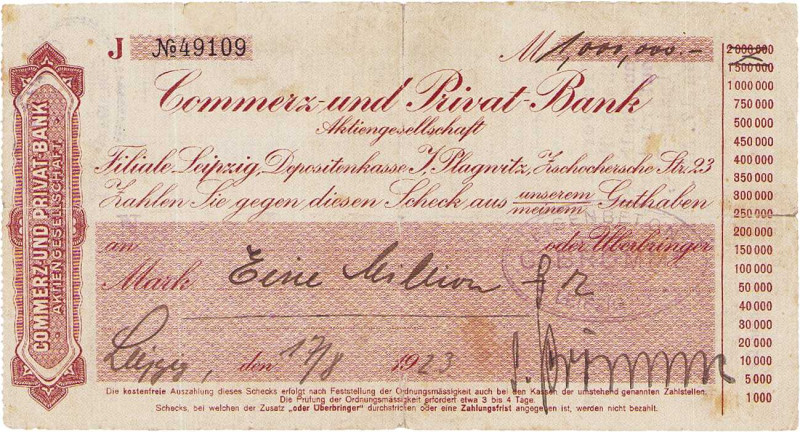 COMMERZ-UND PRIVAT-BANK
AKTIENGESELLSCHAFT
J № 49109
M 1,000,000.-
Commerz- und Privat-Bank
Aktiengesellschaft
Filiale Leipzig, Depositenkasse J, Plagwitz, Zschochersche Str. 23
Zahlen Sie gegen diesen Scheck aus unserem/meinem Guthaben
an oder Überbringer
Mark Eine Million
Leipzig, den 17/8 1923
Die kostenfreie Auszahlung dieses Schecks erfolgt nach Feststellung der Ordnungsmässigkeit auch bei den Kassen der umstehend genannten Zahlstellen.
Die Prüfung der Ordnungsmässigkeit erfordert etwa 3 bis 4 Tage.
Schecks, bei welchen der Zusatz „oder Überbringer" durchstrichen oder eine Zahlungsfrist angegeben ist, werden nicht bezahlt.
2 000 000
1 500 000
1 000 000
750 000
500 000
450 000
400 000
350 000
300 000
250 000
200 000
150 000
100 000
50 000
40 000
30 000
20 000
10 000
5 000
1 000